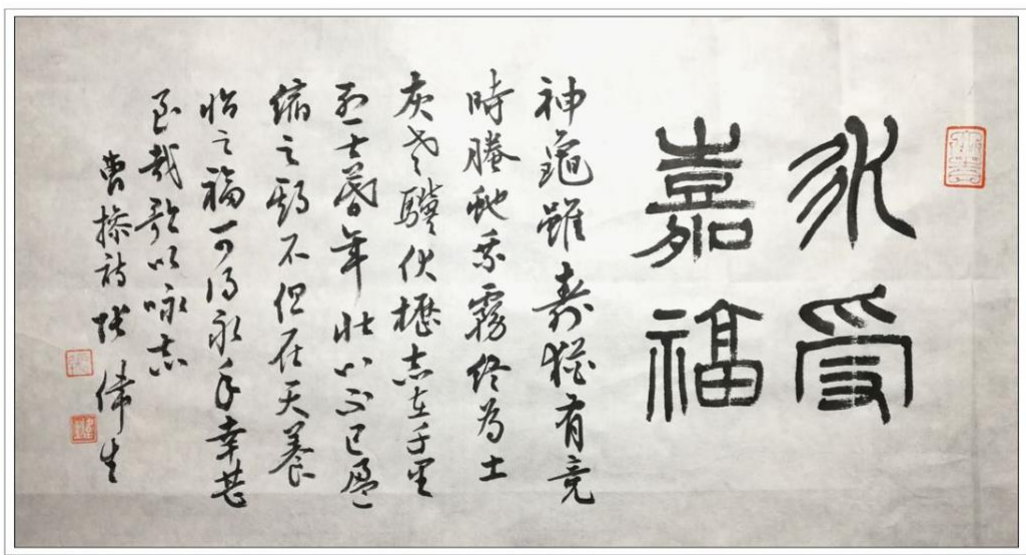 永受
嘉福
神龜雖壽猶有竟
時螣蛇乘霧終為土
灰老驥伏櫪志在千里
烈士暮年壯心不已盈
縮之期不但在天養
怡之福可得永年幸甚
至哉歌以咏志
曹操詩張偉生